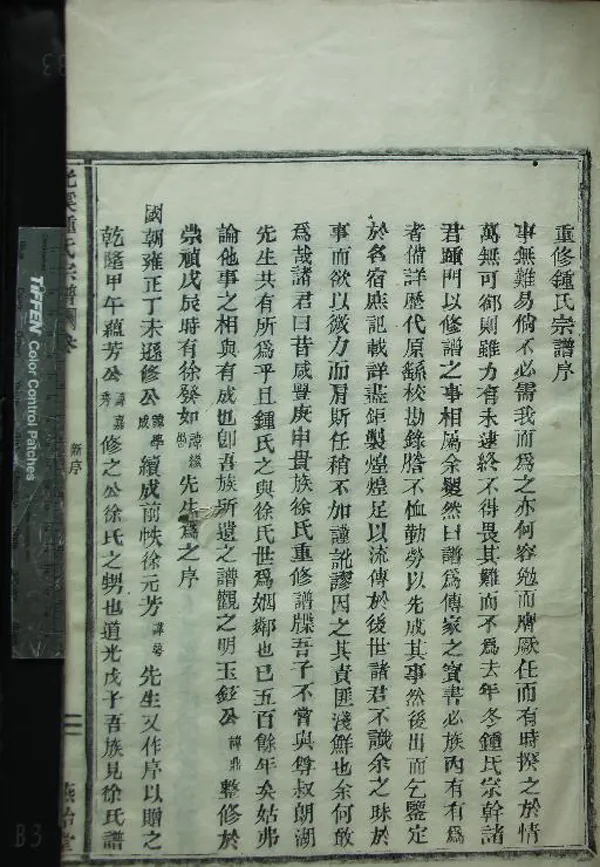 重修鍾氏宗譜序
事無難易倘不必需我而為之亦何容勉而膺厥任而有時揆之於情
萬無可卻則雖力有未逮終不得畏其難而不為去年冬鍾氏宗幹諸
君踵門以修譜之事相屬余矍然曰譜為傳家之寶書必族內有有為
者備詳歷代原繇校勘錄謄不恤勤勞以先成其事然後出而乞鑒定
於名宿庶記載詳盡鉅製煌煌足以流傳於後世諸君不識余之昧於
事而欲以微力而肩斯任稍不加謹訛謬因之其責匪淺鮮也余何敢
為哉諸君曰昔咸豐庚申貴族徐氏重修譜牒吾子不嘗與尊叔朗湖
先生共有所為乎且鍾氏之與徐氏世為姻鄰也已五百餘年矣姑弗
論他事之相與有成也卽吾族所遺之譜觀之明玉鉉公諱鼎整修於
崇禎戊辰時有徐發如諱緣先生為之序
國朝雍正丁未遜修公諱學成續成前帙徐元芳諱馨先生又作序以贈之
乾隆甲午蘊芳公諱嘉秀修之公徐氏之甥也道光戊子吾族見徐氏譜
鍾氏宗譜
新序
二
燕怡堂
TIFFEN Color Control Patches
B3